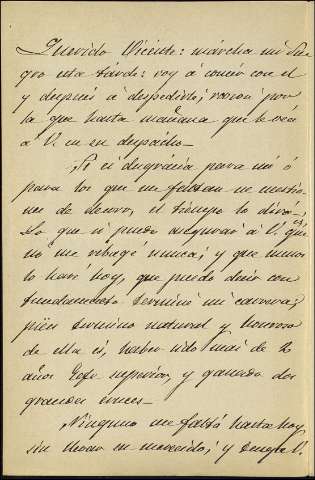 Querido Vicente: márcha mi Sue
gro esta tarde: voy á comer con él
y despues á despedirlo; razon por
la que hasta mañana que le vea
á V. en su despacho—
Si es desgracia para mi ó
para los que me faltan en cuestio
nes de decoro, el tiempo lo dirá—;
Lo que si puedo asegurar á V. es que
no me rebagé nunca; y que menos
lo haré hoy, que puedo decir con
fundamento terminó mi carrera;
pues termino natural y honroso
de ella es, haber sido mas de 20
años Gefe superior, y ganado dos
grandes cruces—
Ninguno me faltó hasta hoy,
sin llevar su merecido; y tenga V.